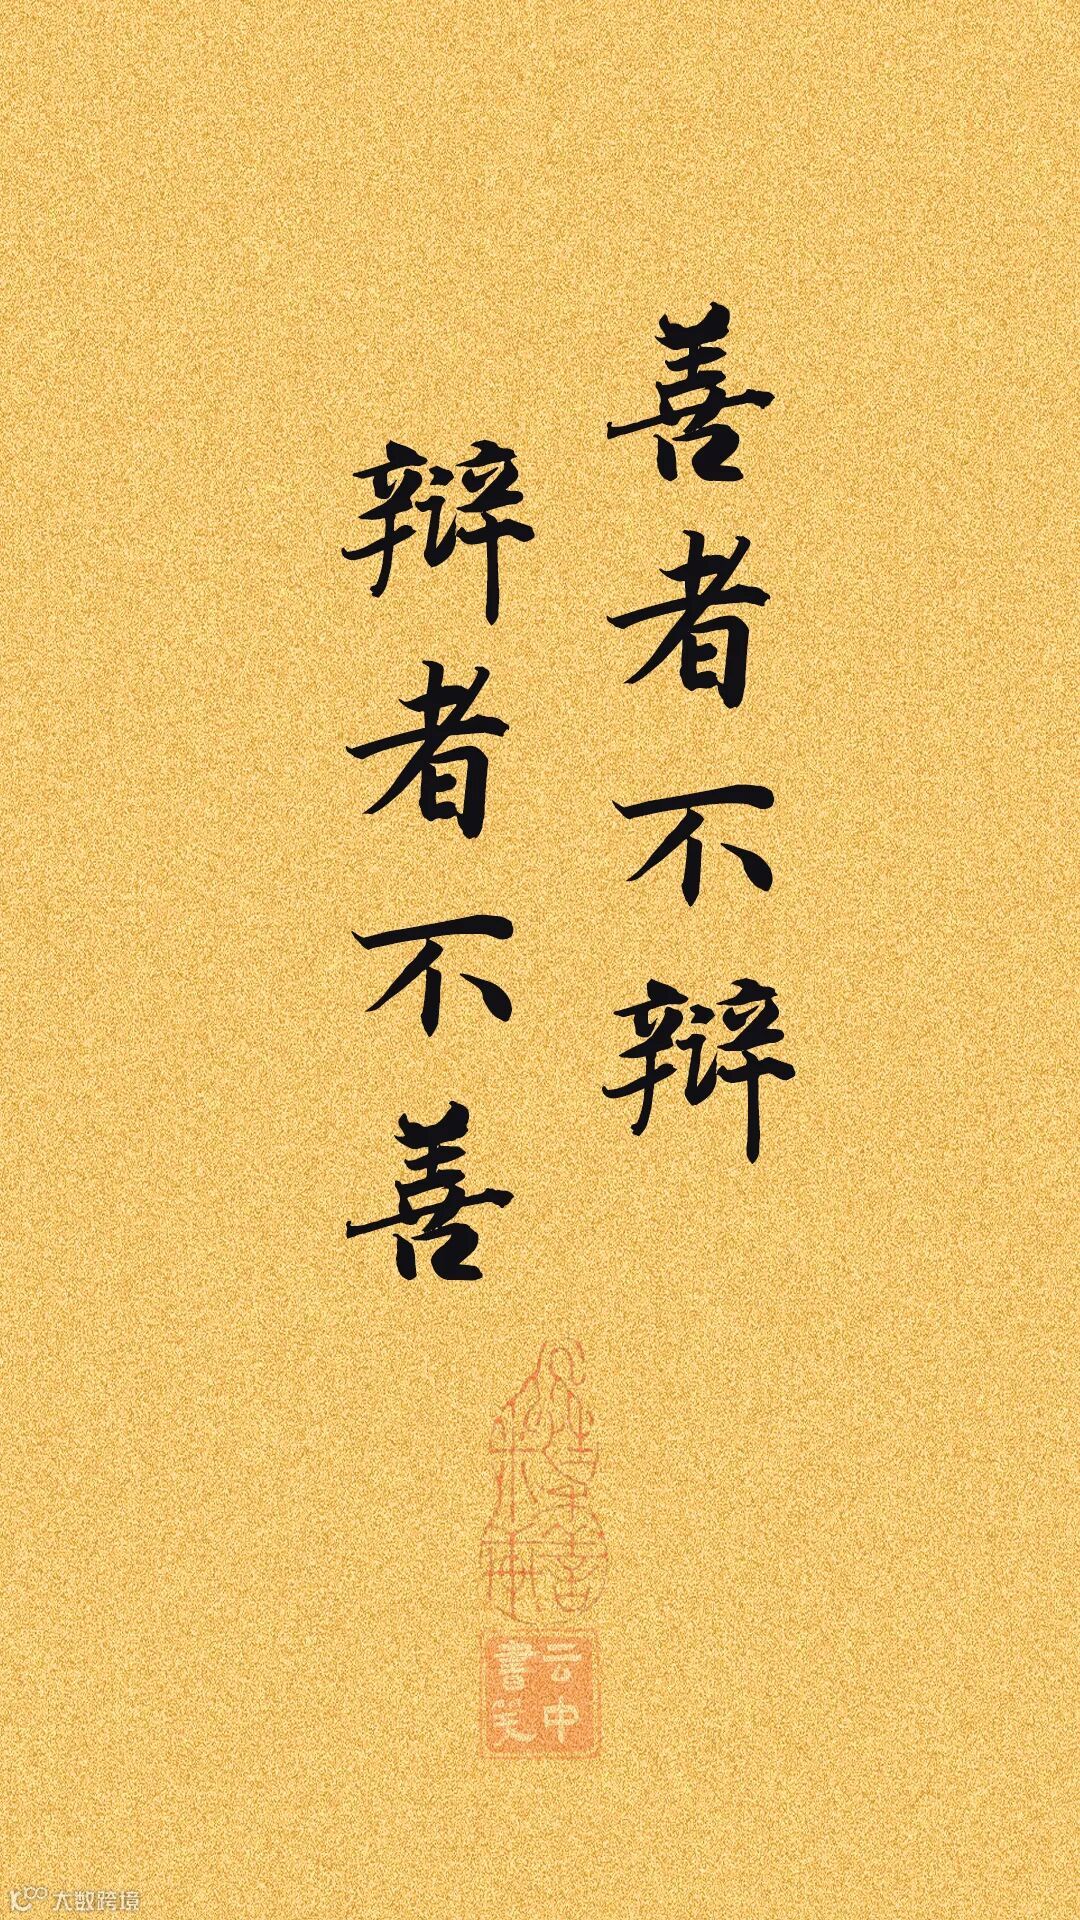 善者不辩
辩者不善
云中
書笑
大数跨境